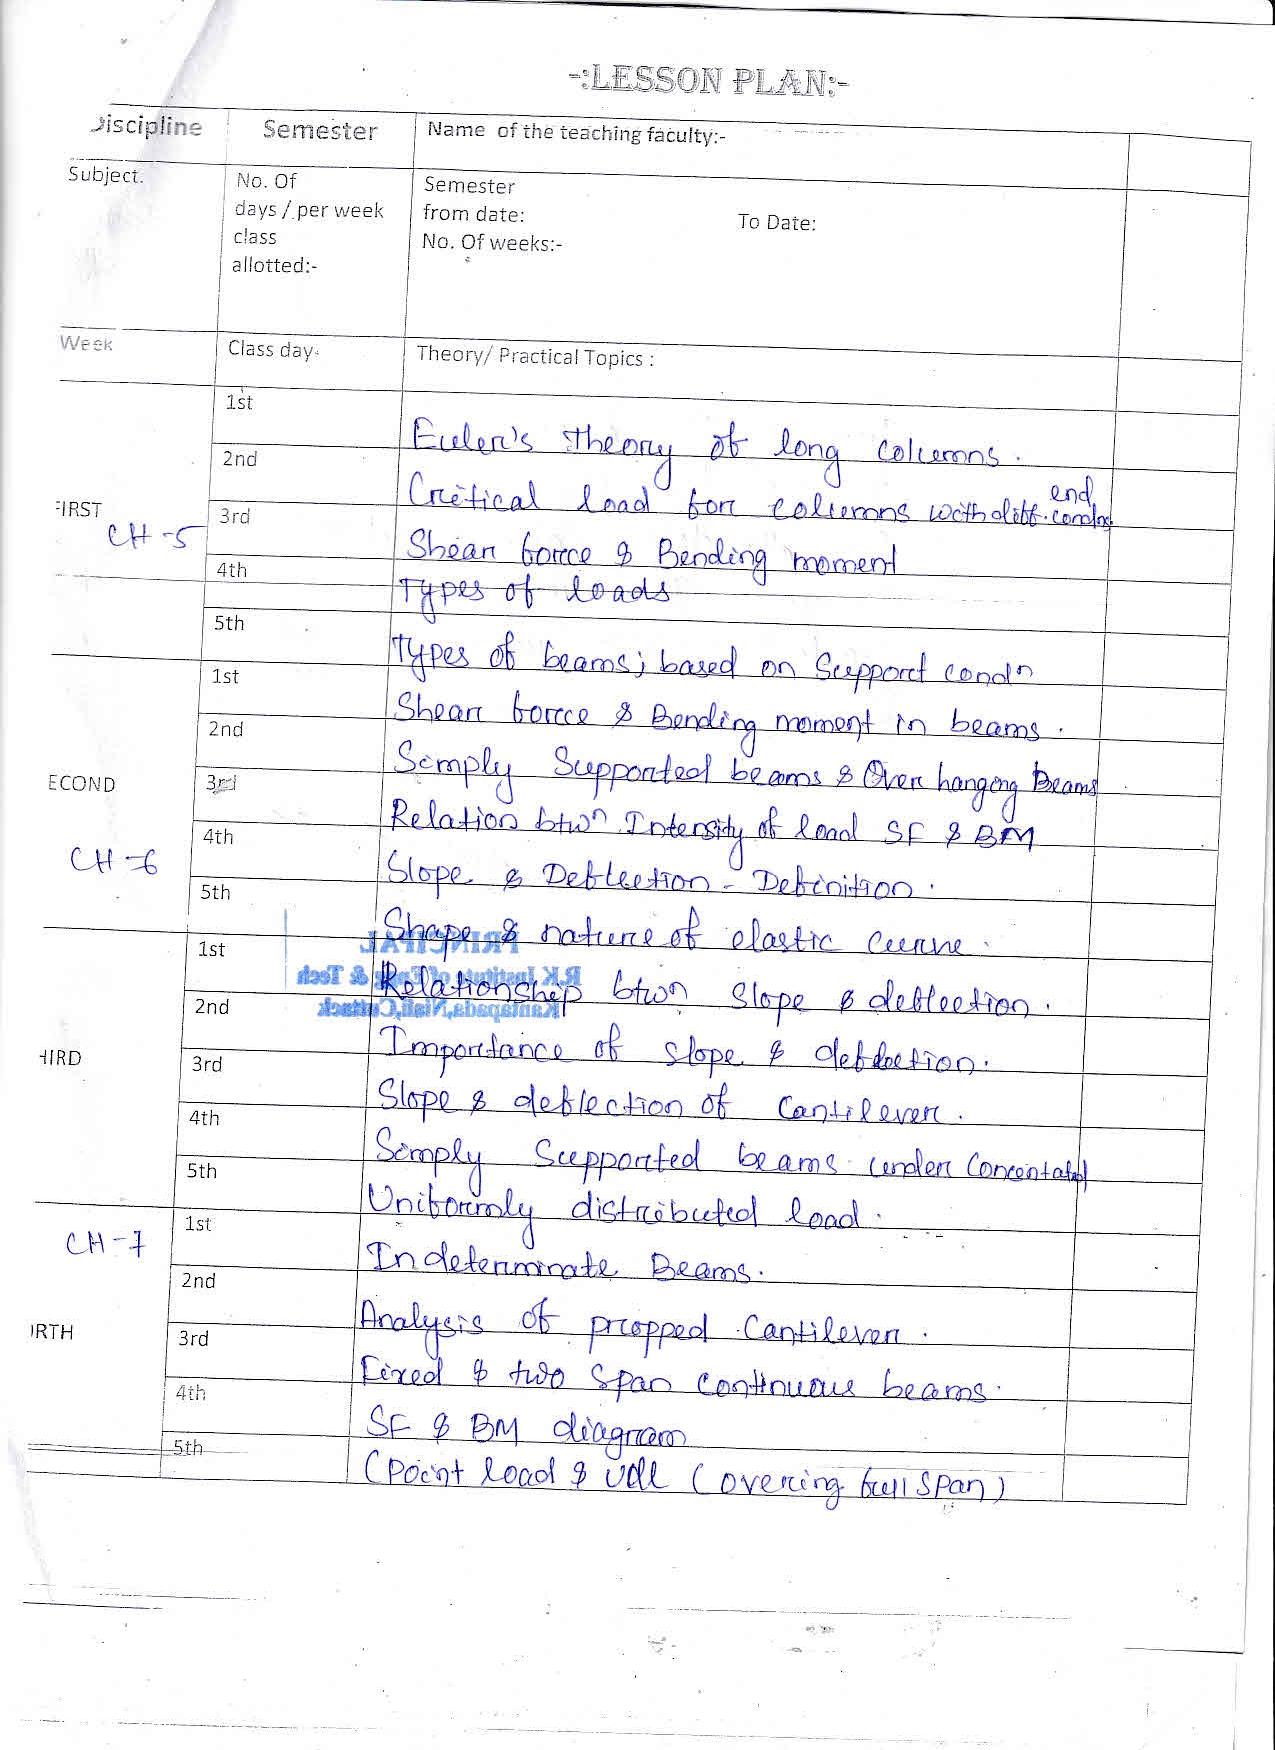 -:LESSON PLAN:-
Discipline Semester Name of the teaching faculty:-
Subject. No. Of days / per week class allotted:- Semester from date: To Date: No. Of weeks:-
Week Class day- Theory/ Practical Topics :
FIRST CH-5
1st Euler's Theory of long columns.
2nd Critical load for columns with diff. end
3rd Shear force & Bending moment
4th Types of loads
5th Types of beams; based on Support condn
ECOND CH-6
1st Shear force & Bending moment in beams.
2nd Simply Supported beams & Over hanging Beams
3rd Relation btwn Intensity of load SF & BM
4th Slope & Deflection - Definition.
5th Shape & nature of elastic curve.
HIRD
1st Relationship btwn slope & deflection.
2nd Importance of slope & deflection.
3rd Slope & deflection of cantilever.
4th Simply Supported beams under Concentated
5th Uniformly distributed load.
CH-7
1st Indeterminate Beams.
2nd Analysis of propped Cantilever.
RTH
3rd Fixed & two span continuous beams.
4th SF & BM diagram
5th (Point load & udl (overing full span)
PRINCIPAL
R.K Institute of Engg & Tech
Kantapada,Niali,Cuttack